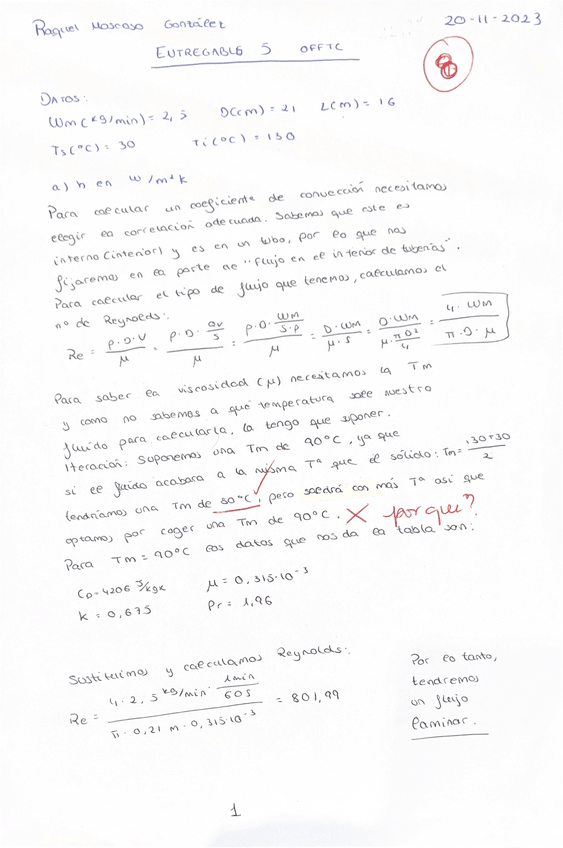 Raquel Moscoso González
20-11-2023
ENTREGABLE 5 OFFTC
8
DATOS:
Wm (kg/min) = 2,5 D(cm) = 21 L(m) = 16
Ts(°C) = 30 Ti(°C) = 130
a) h en W/m²K
Para calcular un coeficiente de convección necesitamos
elegir la correlación adecuada. Sabemos que este es
interno (interior) y es en un tubo, por lo que nos
fijaremos en la parte de "Flujo en el interior de tuberías".
Para calcular el tipo de flujo que tenemos, calculamos el
nº de Reynolds:
Re = ρ·D·V/μ = ρ·D·(Qv/S)/μ = ρ·D·(Wm/S·ρ)/μ = D·Wm/μ·S = D·Wm/(μ·π·D²/4) = 4·Wm/π·D·μ
Para saber la viscosidad (μ) necesitamos la Tm
y como no sabemos a qué temperatura sale nuestro
fluido para calcularla, la tengo que suponer.
Iteración: Suponemos una Tm de 90°C, ya que
si el fluido acabara a la misma Tª que el sólido: Tm = 130+30/2
tendríamos una Tm de 80°C, pero saldrá con más Tª así que
optamos por coger una Tm de 90°C. X por que?
Para Tm = 90°C los datos que nos da la tabla son:
Cp = 4206 J/kgK μ = 0,315·10⁻³
k = 0,675 Pr = 1,96
Sustituimos y calculamos Reynolds:
Re = 4·2,5 kg/min · 1min/60s / π·0,21 m·0,315·10⁻³ = 801,99
Por lo tanto,
tendremos
un flujo
laminar.
1